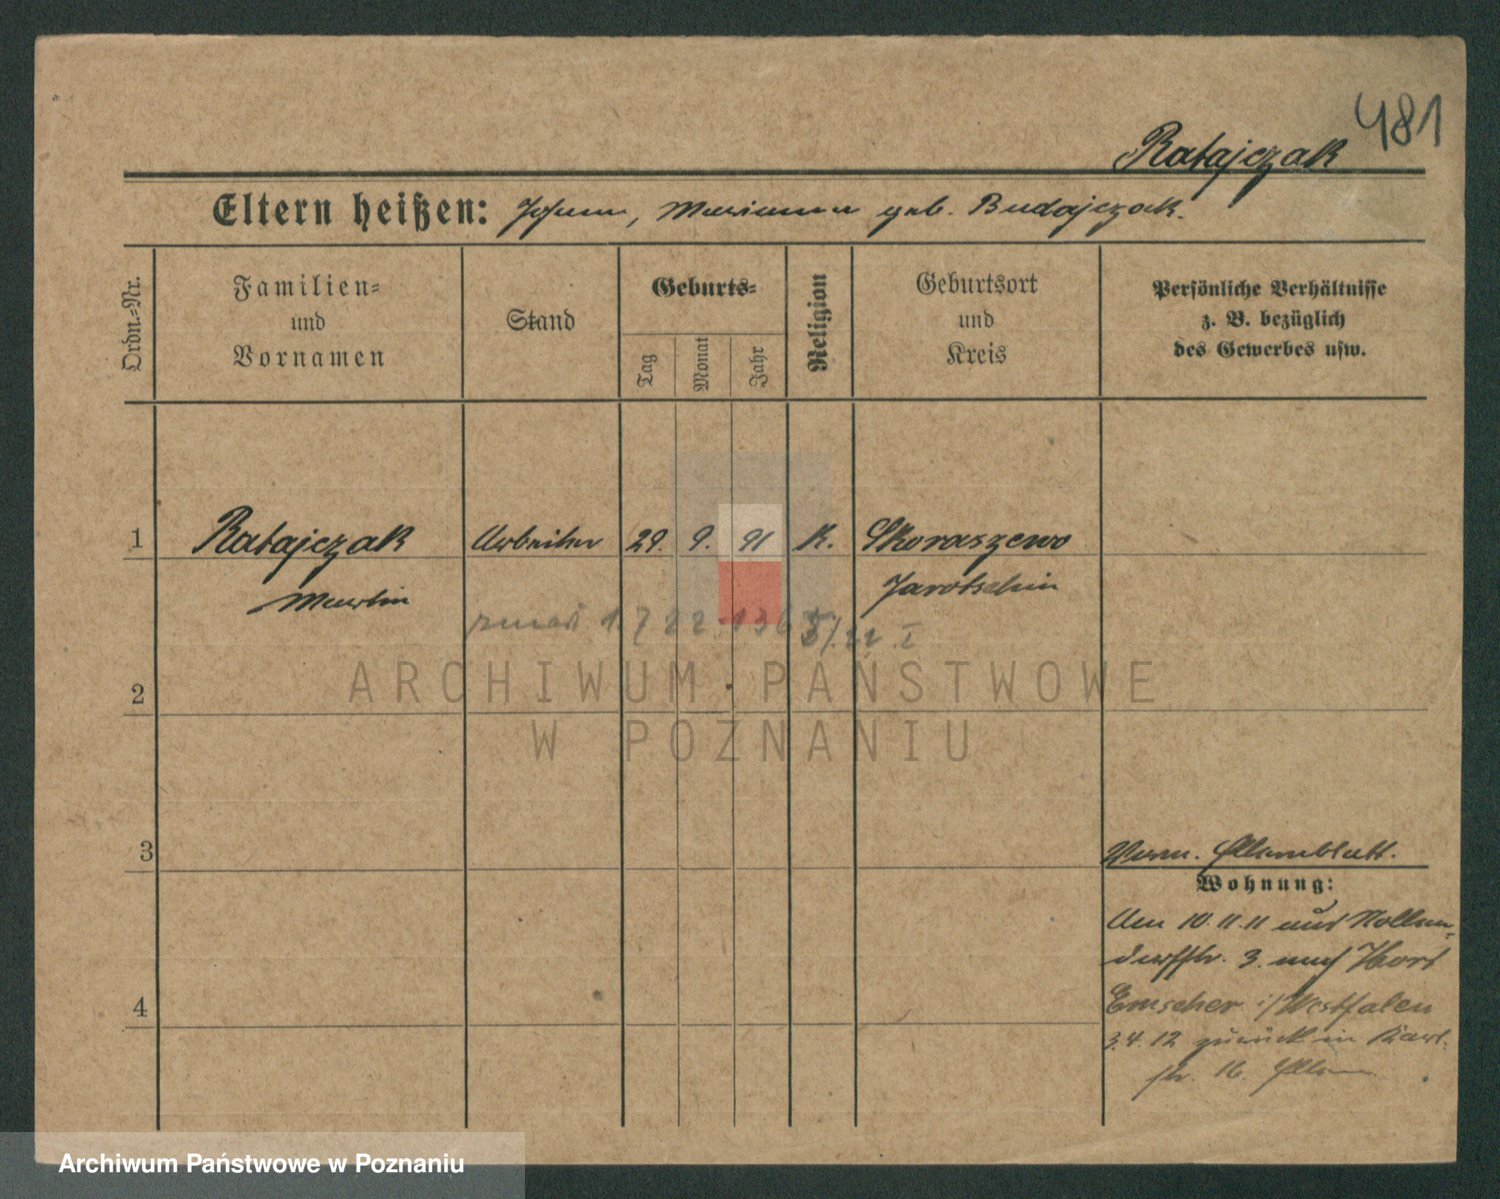 481
Ratajczak
Eltern heißen: Johann, Marianna geb. Budajczak.
Ordn.-Nr.
Familien- und Vornamen
Stand
Geburts-
Tag
Monat
Jahr
Religion
Geburtsort und Kreis
Persönliche Verhältnisse
z. B. bezüglich
des Gewerbes usw.
1 Ratajczak Arbeiter 29. 9. 91 K. Skoraszewo
Martin Jarotschin
zmarł 1.7 22
ARCHIWUM PAŃSTWOWE
W POZNANIU
2
3
Elternblatt.
Wohnung:
Am 10.11.11 aus Nollen-
dorfstr. 3. nach Horst
Emscher i/Westfalen
3.4.12 zurück in Karl-
str. 16. Eltern
4
Archiwum Państwowe w Poznaniu